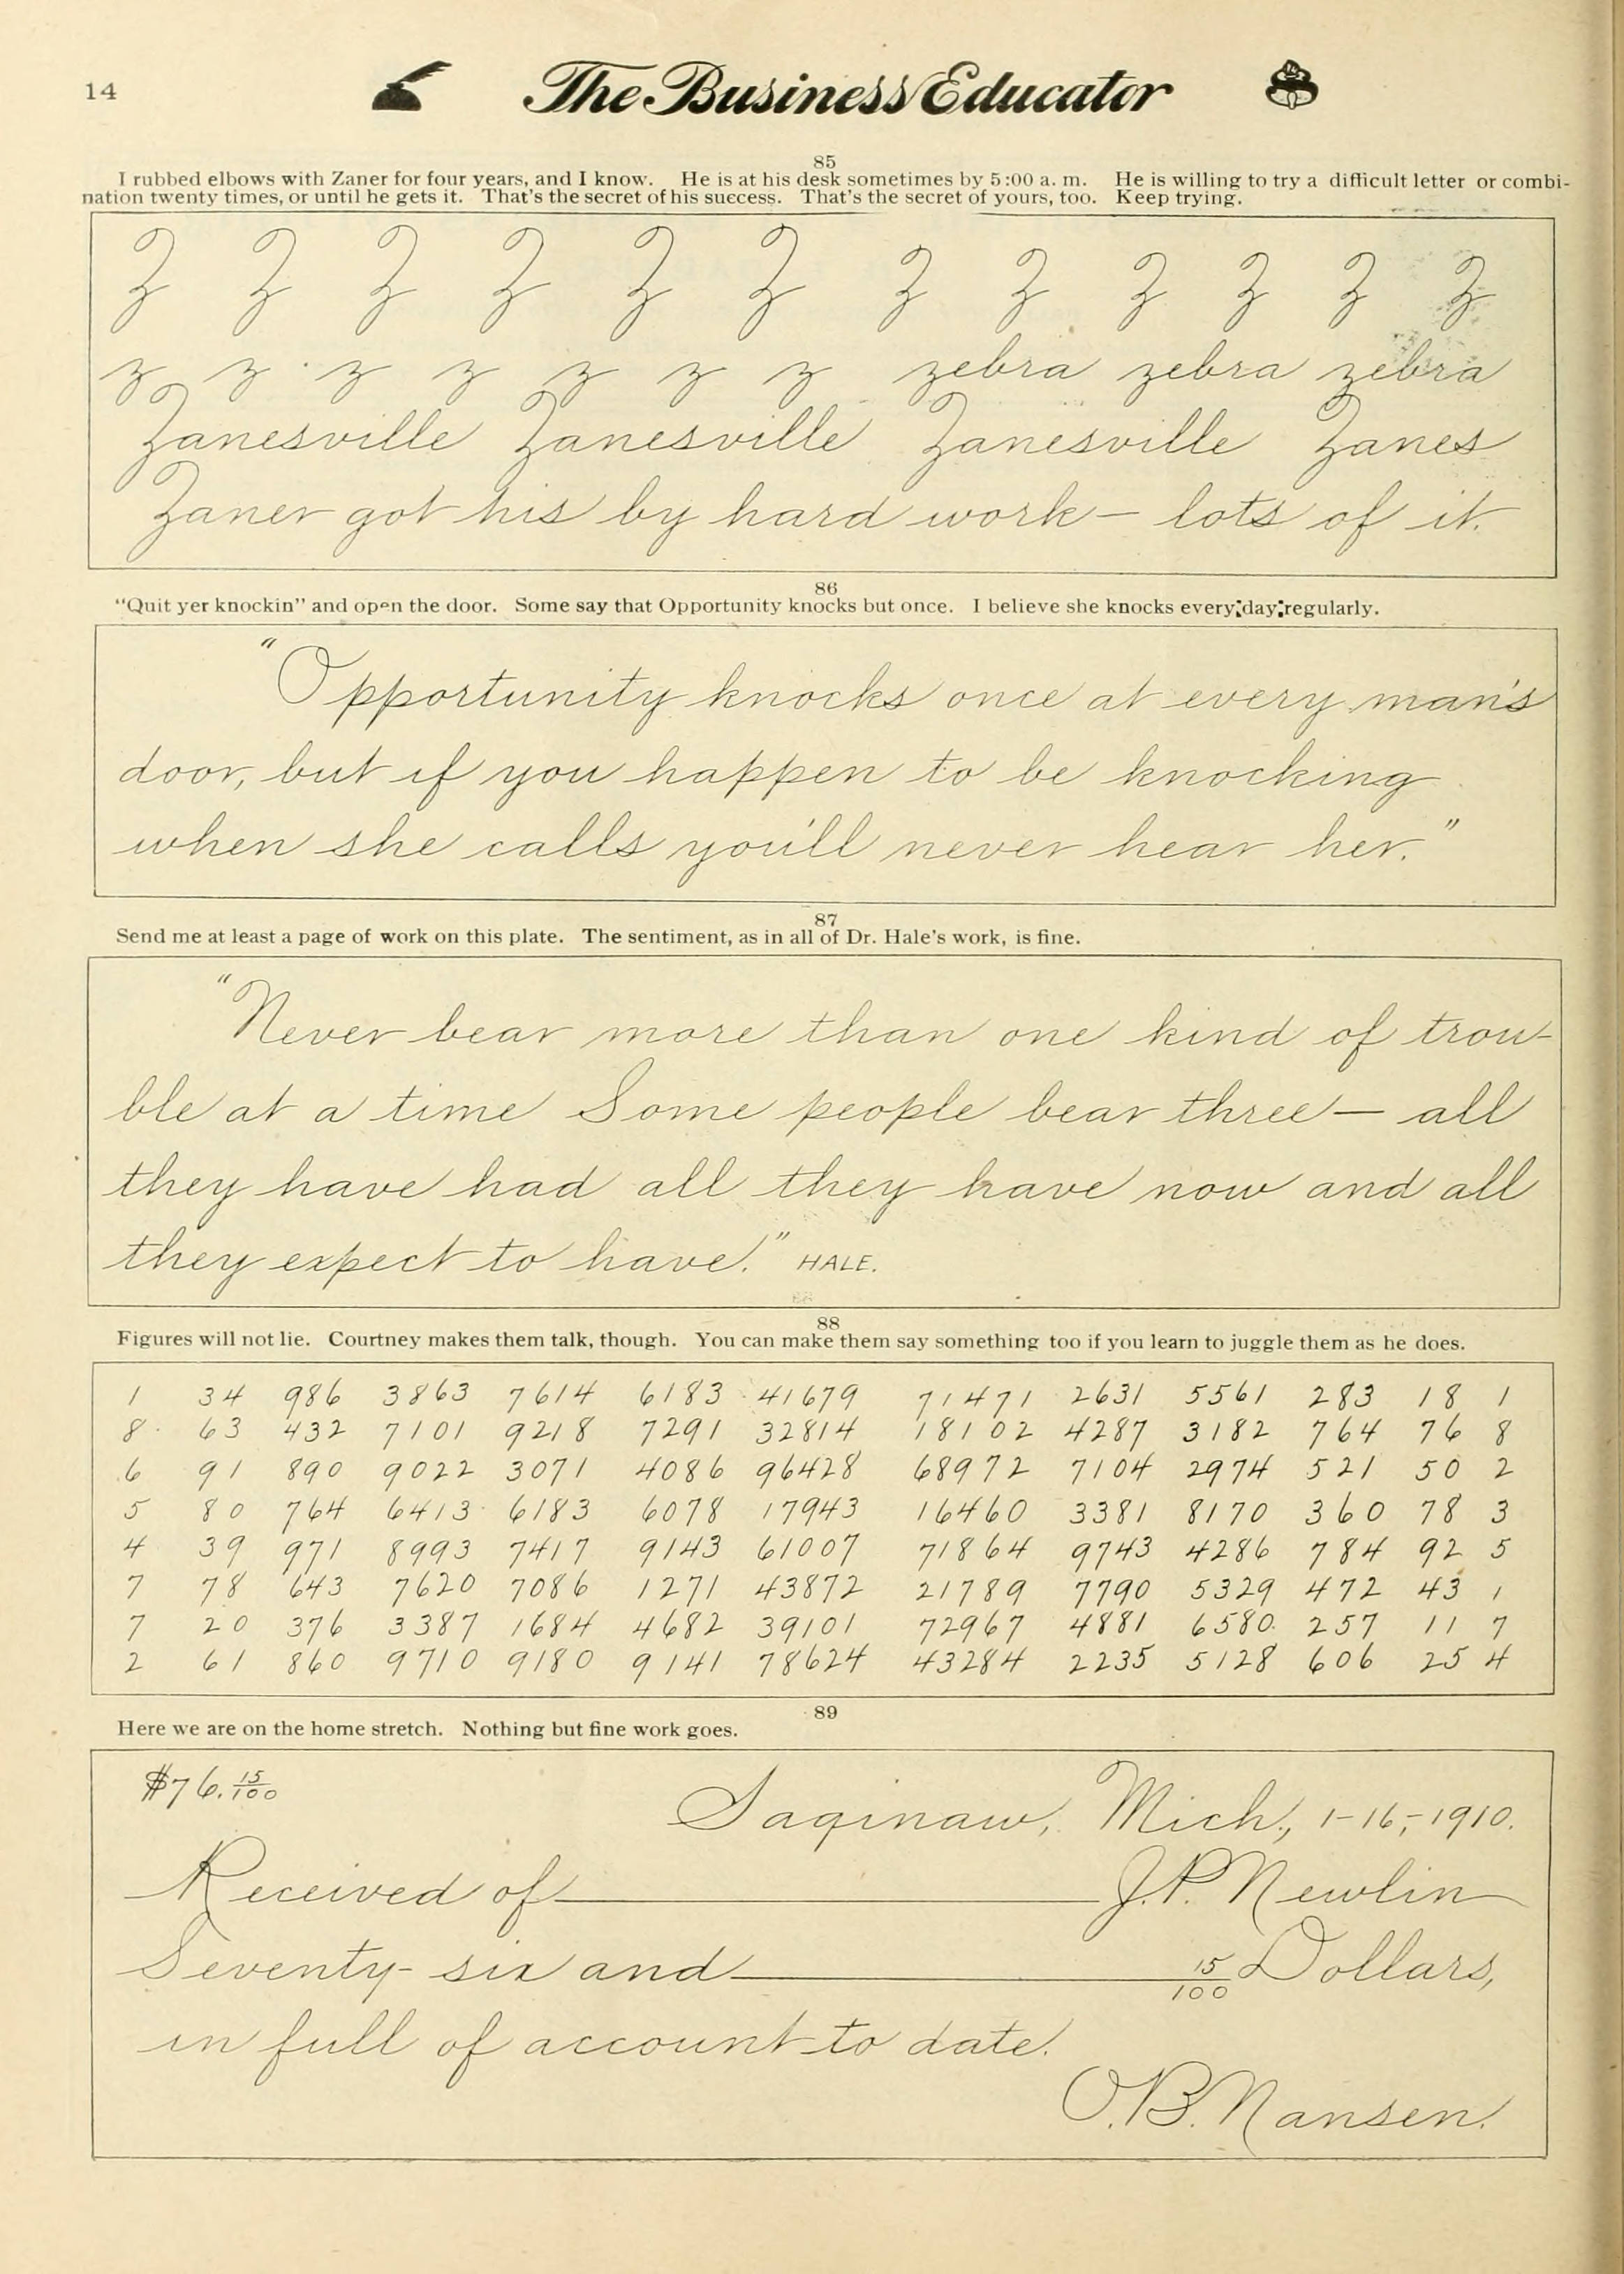 14
The Business Educator
85
I rubbed elbows with Zaner for four years, and I know. He is at his desk sometimes by 5:00 a. m. He is willing to try a difficult letter or combi-
nation twenty times, or until he gets it. That's the secret of his success. That's the secret of yours, too. Keep trying.
Z Z Z Z Z Z Z Z Z Z Z Z
z z z z z z z zebra zebra zebra
Zanesville Zanesville Zanesville Zanes
Zaner got his by hard work — lots of it.
86
"Quit yer knockin" and open the door. Some say that Opportunity knocks but once. I believe she knocks every day regularly.
"Opportunity knocks once at every man's
door, but if you happen to be knocking
when she calls you'll never hear her."
87
Send me at least a page of work on this plate. The sentiment, as in all of Dr. Hale's work, is fine.
"Never bear more than one kind of trou-
ble at a time Some people bear three — all
they have had all they have now and all
they expect to have." HALE.
88
Figures will not lie. Courtney makes them talk, though. You can make them say something too if you learn to juggle them as he does.
1 34 986 3863 7614 6183 41679 71471 2631 5561 283 18 1
8 63 432 7101 9218 7291 32814 18102 4287 3182 764 76 8
6 91 890 9022 3071 4086 96428 68972 7104 2974 521 50 2
5 80 764 6413 6183 6078 17943 16460 3381 8170 360 78 3
4 39 971 8993 7417 9143 61007 71864 9743 4286 784 92 5
7 78 643 7620 7086 1271 43872 21789 7790 5329 472 43 1
7 20 376 3387 1684 4682 39101 72967 4881 6580 257 11 7
2 61 860 9710 9180 9141 78624 43284 2235 5128 606 25 4
89
Here we are on the home stretch. Nothing but fine work goes.
$76.15/100
Saginaw, Mich., 1-16,-1910.
Received of J.P. Newlin
Seventy-six and 15/100 Dollars,
in full of account to date.
O.B. Nansen.